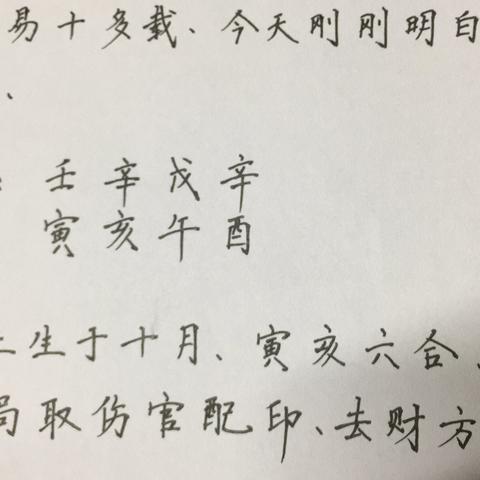 易十多载、今天刚刚明白
、
壬辛戊辛
寅亥午酉
土生于十月、寅亥六合、
局取伤官配印、去财方